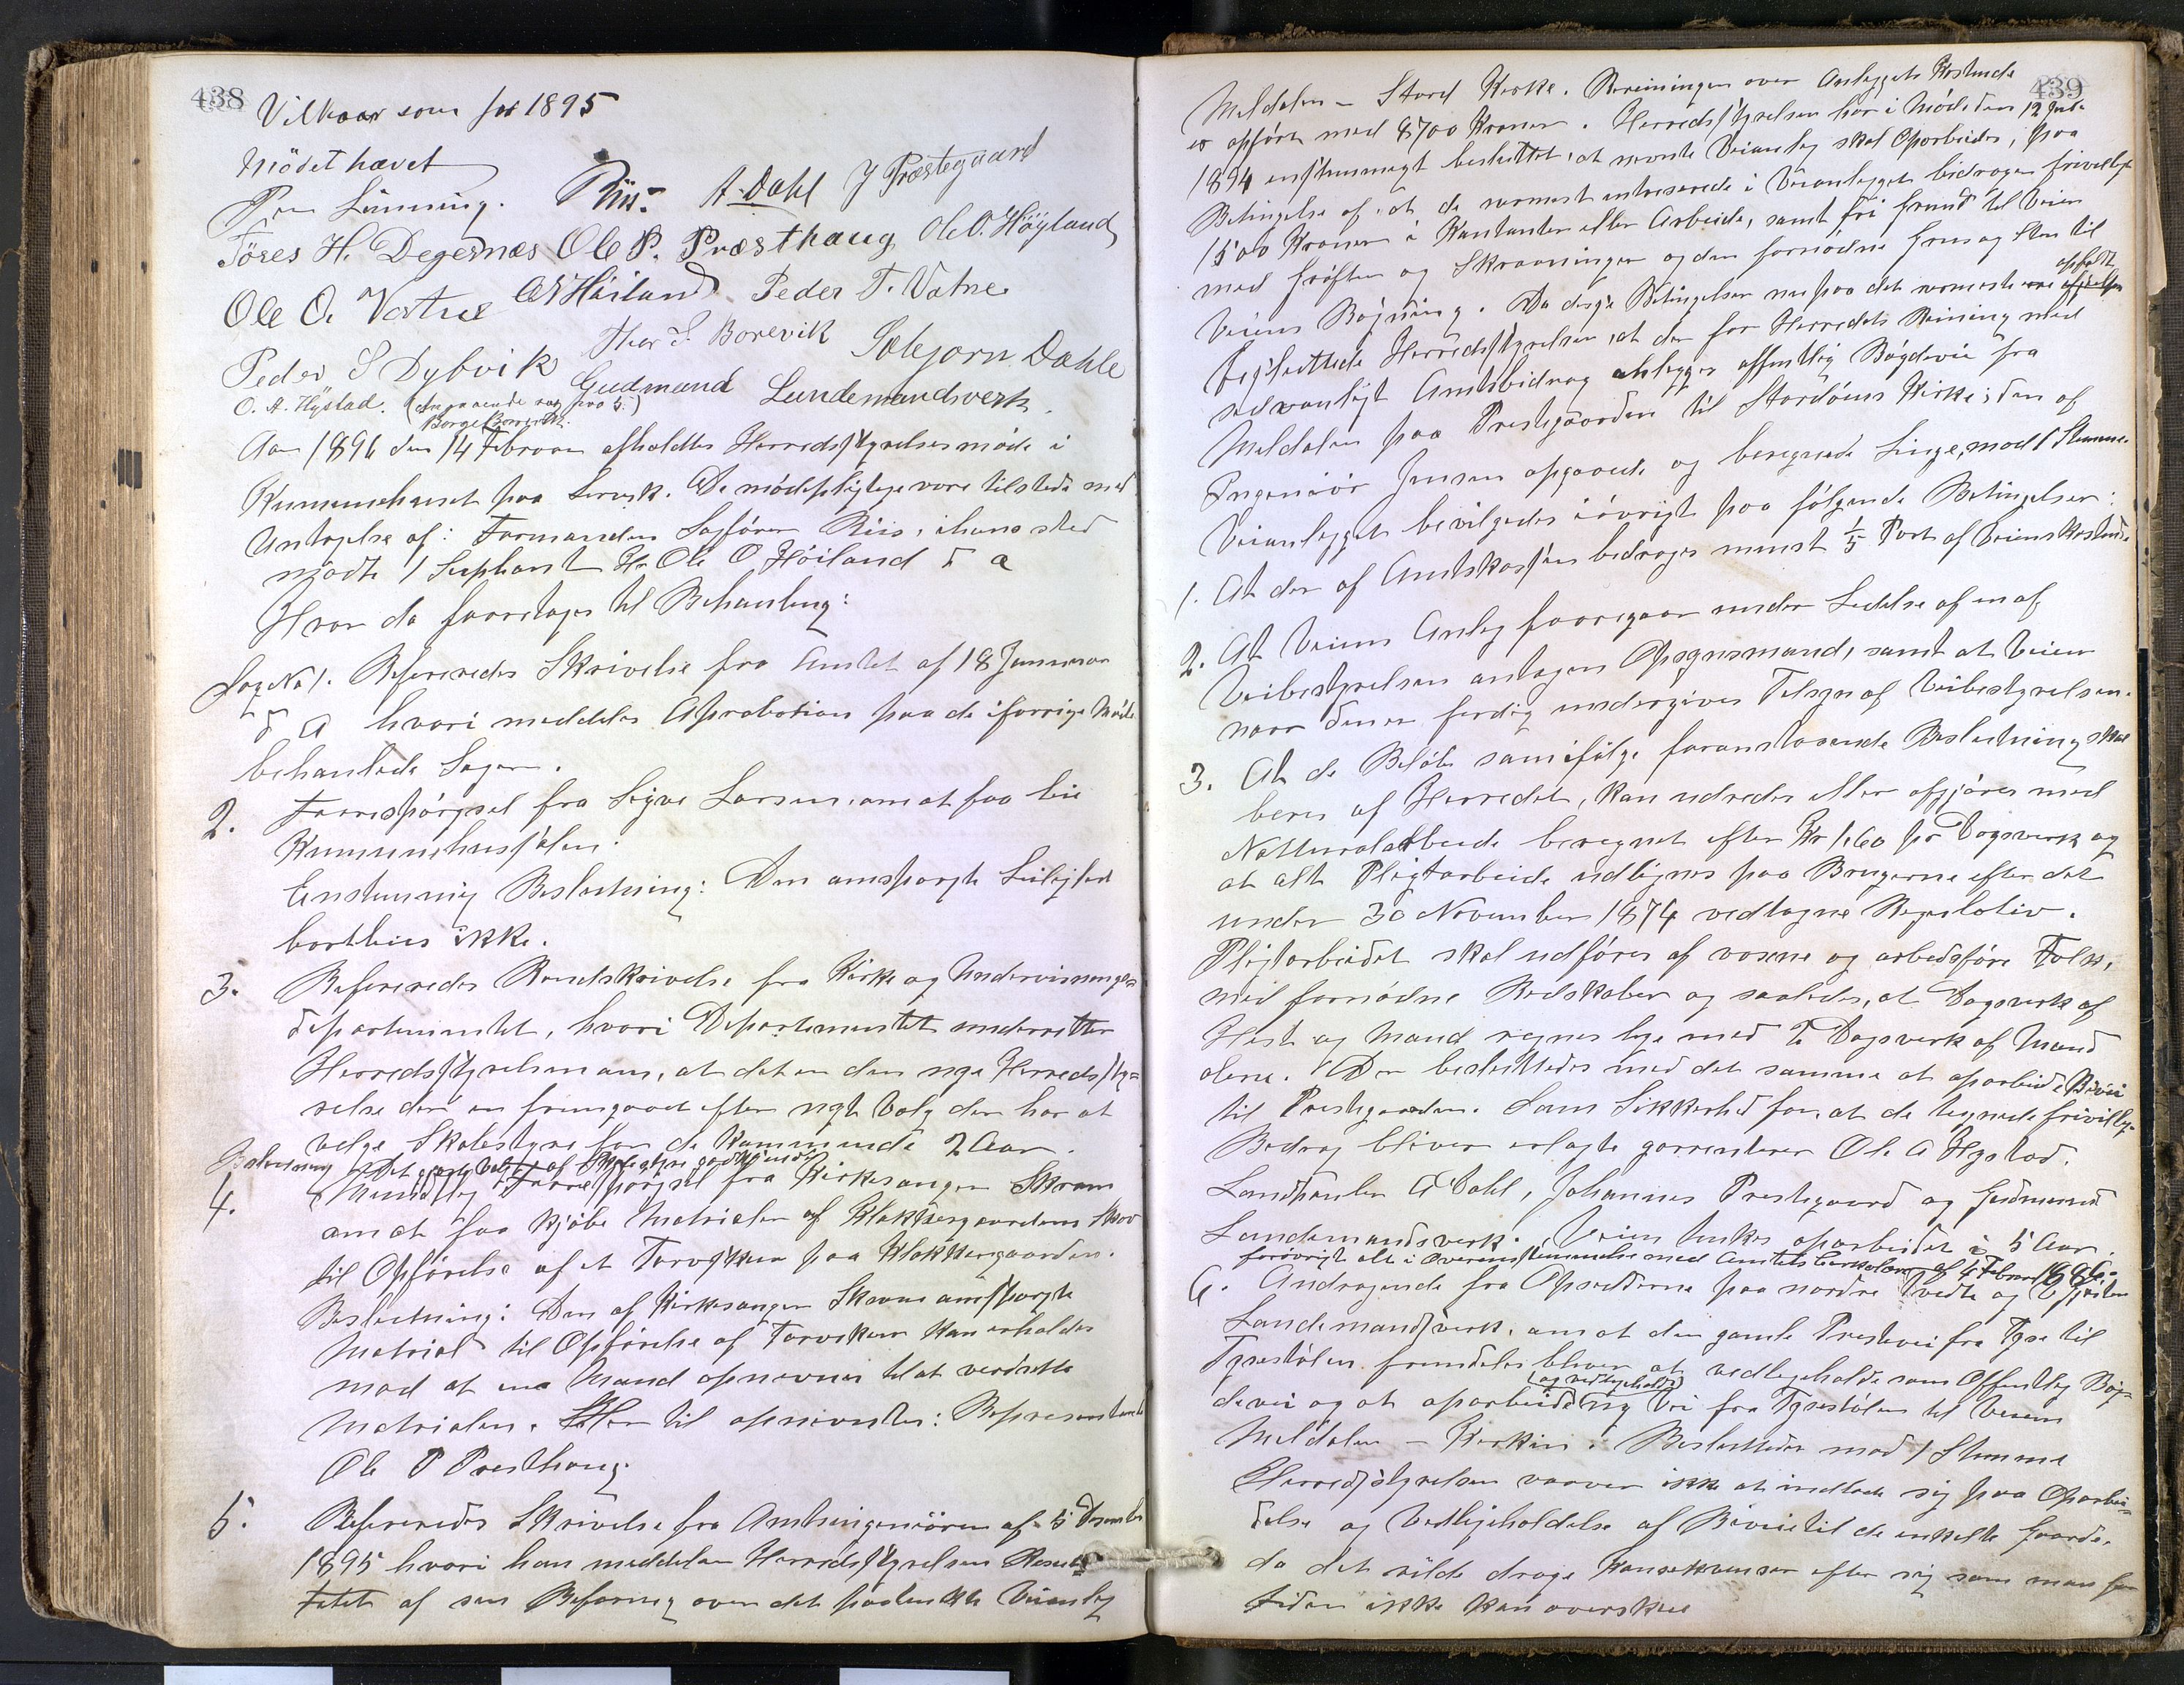 438
Vilkaar som for 1895
Mödet hævet
Lünning. Riis. A. Dahl J Præstegaard
Töres H. Degernæs Ole P. Præsthaug Ole O. Höyland
Ole O. Vatne Höiland Peder T. Vatne
Peder S Dybvik Thor S. Borevik Solejorn Dahle
O. A. Hystad. (Angaaende sag No 5.) Gudmund Lundemandsverk.
Børge Borevik.
Aar 1896 den 14 Februar afholdtes Herredsstyrelsesmöde i
Kummunehuset paa Lervik. De mödepligtige vare tilstede med
Untagelse af: Formanden Sagförer Riis, i hans sted
mödte 1 Suphant Hr Ole O. Höiland d a
Hvor da foretages til Behanling:
Sag No 1. Refereredes Skrivelse fra Amtet af 18 Januar
d A hvori meddeles Aprobation paa de i forrige Möde
behanlede Sager.
2. Forespörgsel fra Sigve Larsen, om at faa leie
Kummunehussalen.
Enstemmig Beslutning: Den omspurgte Leilighed
bortleies ikke.
3. Refereredes Rundskrivelse fra Kirke og Undervisninges
departementet, hvori Departementet underretter
Herredsstyrelsen om, at det er den nye Herredssty=
relse der er fremgaaet efter nyt Valg der har at
velge Skolestyre for de kommende 2 Aar.
Beslutning Det gjorte Valg af Skolestyre godkjendes
4. Mundtlig Forespörgsel fra Kirkesanger Skram
om at faa kjöbe Matrialer af Klokkergaardens Skov
til Opförelse af et Torvskur paa Klokkergaarden.
Beslutning: Den af Kirkesanger Skram omspurgte
Matrial til Opförelse af Torvskur kan erholdes
mod at en Mand opnevnes til at verdsette
Matrialen. Her til opnevntes: Representant
Ole P Presthaug.
5. Refereredes Skrivelse fra Amtsingeniören af 5 Desember
1895 hvori han meddeler Herredsstyrelsen Resul=
tatet af sin Befaring over det paatenkte Veianleg
439
Meldalen – Stord Kirke. Bereiningen over Anleggets Kostende
er opfört med 8700 Kroner. Herredsstyrelsen har i Möde den 12 Juli
1894 enstemmigt besluttet, at nevnte Veianleg skal Oparbeides, paa
Betingelse af, at de nermest intreserede i Veianlegget bidrager frivilligt
1500 Kroner i Kontanter eller Arbeide, samt fri Grund til Veien
med Gröfter og Skraaninger og den fornödne Grus og Sten til
Veiens Bygning. Da disse Betingelser nu paa det nermeste ere opfyldt
besluttede Herredsstyrelsen, at der for Herredets Reining med
sedvanligt Amtsbidrag anlegges offentlig Bygdevei fra
Meldalen paa Prestegaarden til Stordöens Kirke, i den af
Ingeniör Jensen opgaaede og beregnede Linje, mod 1 Stemme.
Veianlegget bevilgedes iövrigt paa fölgende Betingelser:
1. At der af Amtskassen bidrages minst 1/5 Part af Veiens Kostende
2. At Veiens Anleg foregaar under Ledelse af en af
Veibestyrelsen antagen Opsynsmand, samt at Veien
naar den er ferdig undergives Tilsyn af Veibestyrelsen.
3. At de Belöb som ifölge foranstaaende Beslutning skal
beres af Herredet, kan udredes eller afgjöres med
Natturalarbeide beregnet efter Kr 1,60 pr Dagsverk og
at alt Pligtarbeide udlignes paa Brugerne efter det
under 30 November 1874 vedtagne Regulativ.
Pligtarbeidet skal udföres af voxne og arbeidsföre Folk,
med fornödne Redskaber og saaledes, at Dagsverk af
Hest og Mand regnes lige med 2 Dagsverk af Mand
alene. Der besluttedes med det samme at oparbeide Bivei
til Prestegaarden. Som Sikkerhed for, at de tegnede frivillige
Bedrag bliver erlagte garrenterer Ole A Hystad.
Landhandler A Dahl, Johannes Prestegaard og Gudmund
Landemandsverk. Veien tenkes oparbeidet i 5 Aar.
forövrigt alt i Overensstemmelse med Amtets Cirkulære af 4 Februar 1896.
6. Andragende fra Opsidderne paa nordre Tvedte og
Landemandsverk, om at den gamle Prestevei fra Tyse til
Tysestölen fremdeles bliver at vedligeholde som Offentlig Byg=
devei og at oparbeide (og vedligeholde) ny Vei fra Tysestölen til Veien
Meldalen – Kirken. Besluttedes mod 1 Stemme
Herredsstyrelsen vover ikke at indlade sig paa Oparbei=
delse og Vedligeholdelse af Biveie til de enkelte Gaarde,
da det vilde drage Konsekvenser efter sig som man for
tiden ikke kan overskue